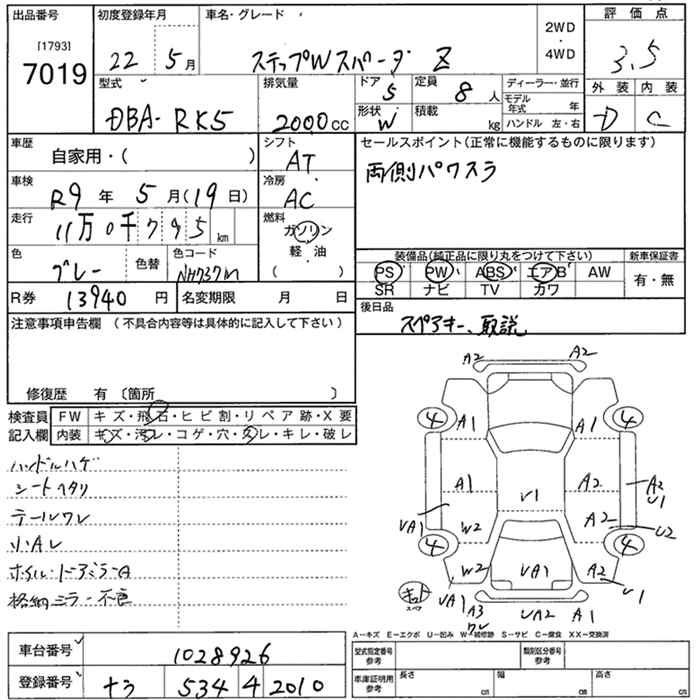 出品番号
[1793]
7019
初度登録年月
22 5月
車名・グレード
ステップWスパーダ Z
2WD
・
4WD
評価点
3.5
外装 内装
D C
型式
DBA- RK5
排気量
2000cc
ドア 5
定員 8人
形状 W
積載 kg
ディーラー・並行
モデル年式 年
ハンドル 左・右
車歴
自家用・( )
シフト
AT
セールスポイント(正常に機能するものに限ります)
両側パワスラ
車検
R9年 5月(19日)
冷房
AC
走行
11万0千795km
燃料
ガソリン
軽・油
( )
色
グレー
色替
色コード
NH737M
装備品(純正品に限り丸をつけて下さい)
PS PW ABS エアB AW
SR ナビ TV カワ
新車保証書
有・無
R券 13940円
名変期限 月 日
後日品
スペアキー、取説
注意事項申告欄 (不具合内容等は具体的に記入して下さい)
修復歴 有 〔箇所 〕
検査員
記入欄
FW キズ・飛石・ヒビ割・リペア跡・X要
内装 キズ・汚レ・コゲ・穴・スレ・キレ・破レ
ハンドルハゲ
シートヘタリ
テールワレ
小Aレ
ホイル・ドアミラーA
格納ミラー不良
A2 A2
4 A1 A1 4
A1 V1 A2 A2
U1
VA1 W2 A2 U2
4 4
W2 VA1 A2 U1
キット
スペア
VA1 A3
ワレ
UA2 A1
A-キズ E-エクボ U-凹み W-補修跡 S-サビ C-腐食 XX-交換済
車台番号 1028926
登録番号 ナラ 534 4 2010
型式指定番号
参考
類別区分番号
参考
車庫証明用
参考
長さ cm
幅 cm
高さ cm